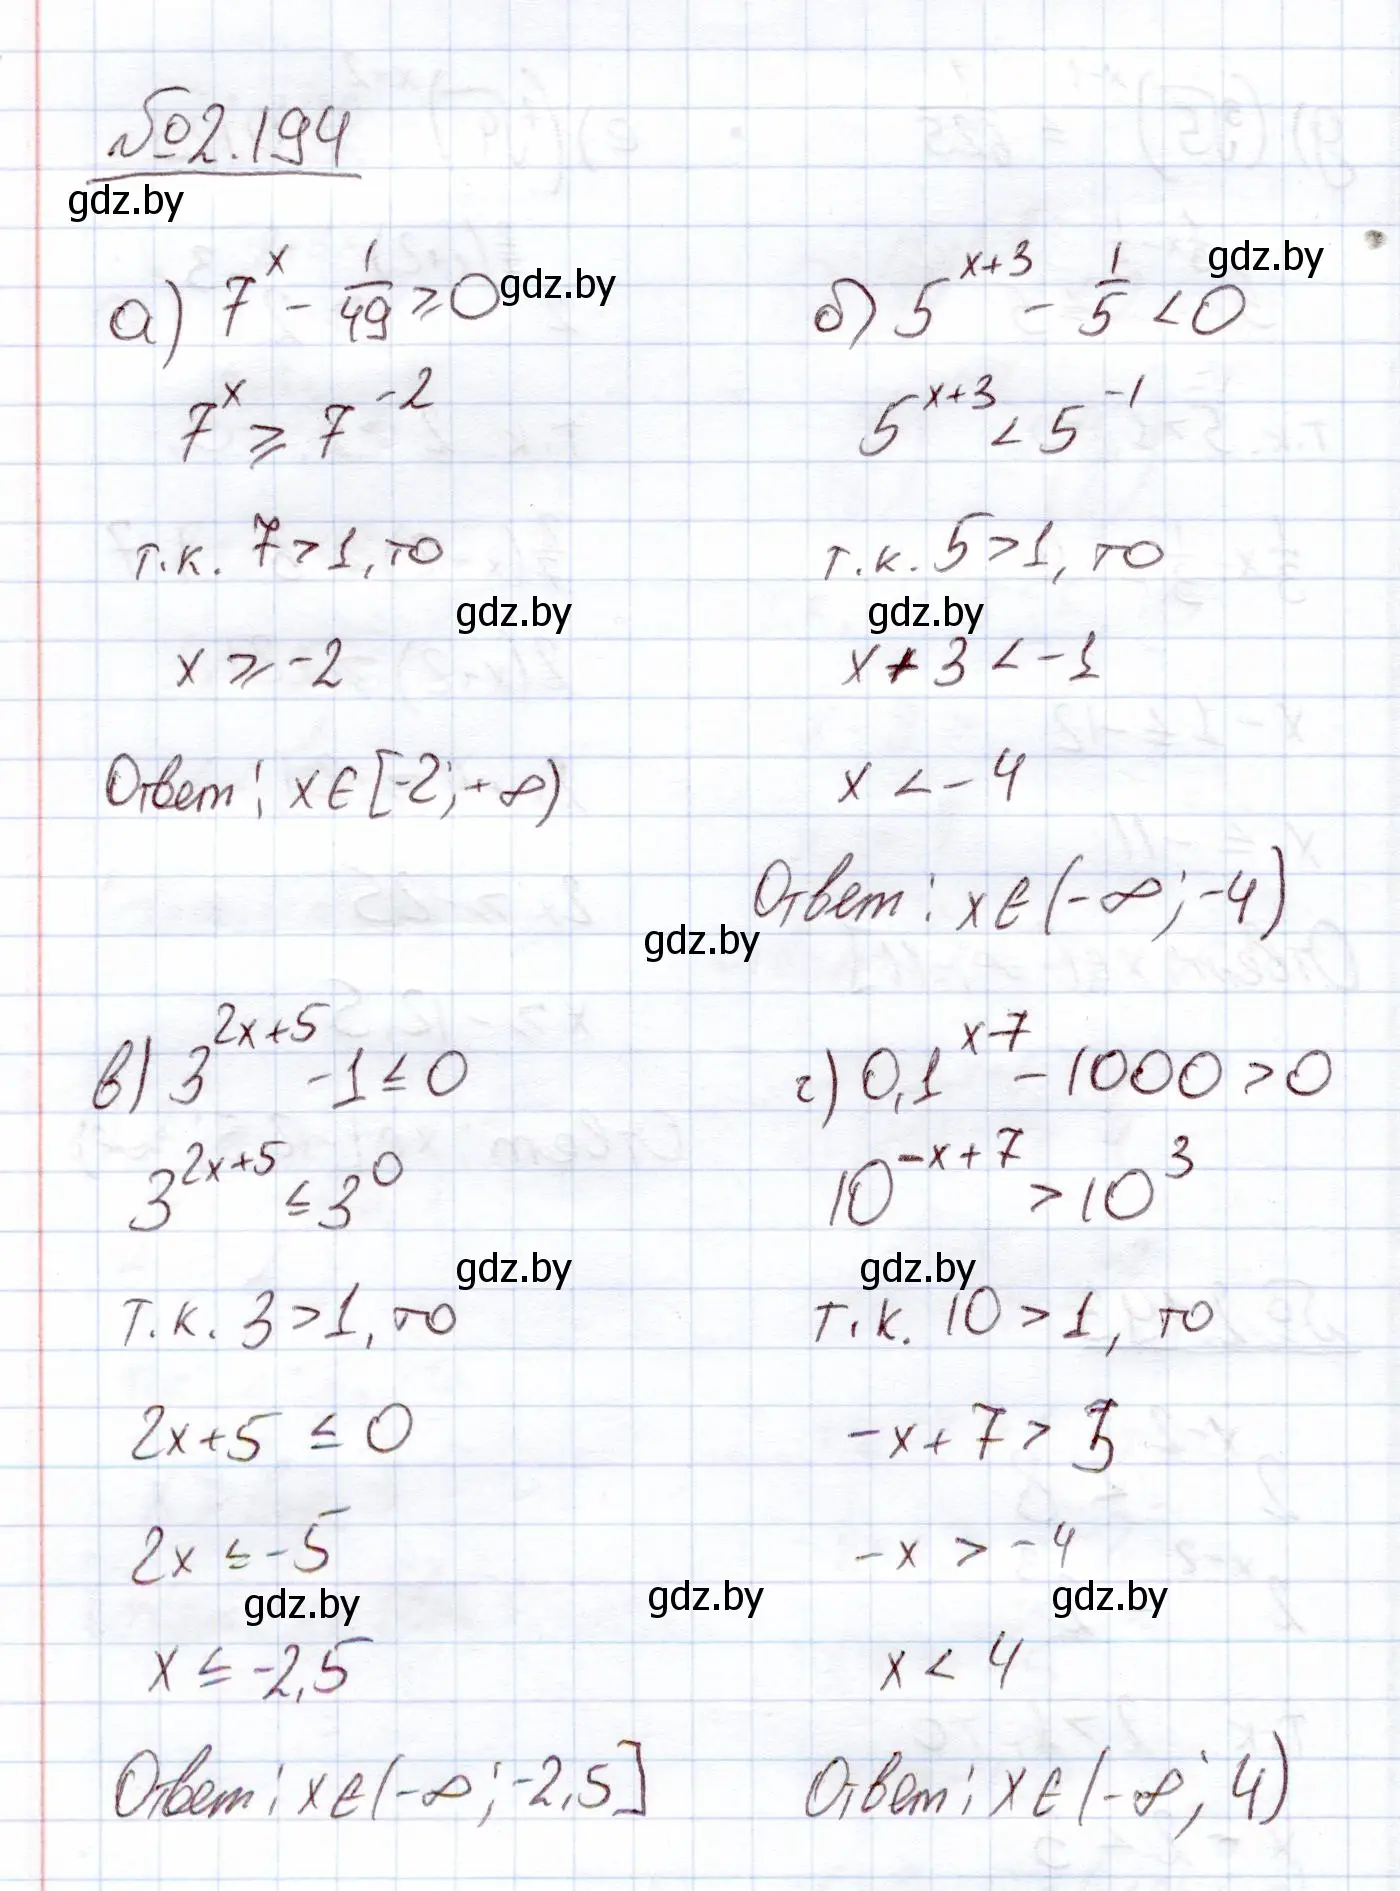 №2.194
gdz.by
а) 7^x - 1/49 ≥ 0 gdz.by
7^x ≥ 7^-2
т.к. 7 > 1, то
gdz.by
x ≥ -2
Ответ: x ∈ [-2; +∞)
gdz.by
б) 5^x+3 - 1/5 < 0
5^x+3 < 5^-1
т.к. 5 > 1, то
gdz.by
x + 3 < -1
x < -4
Ответ: x ∈ (-∞; -4)
gdz.by
в) 3^2x+5 - 1 ≤ 0
3^2x+5 ≤ 3^0
gdz.by
т.к. 3 > 1, то
2x+5 ≤ 0
2x ≤ -5
gdz.by
x ≤ -2,5
Ответ: x ∈ (-∞; -2,5]
г) 0,1^x-7 - 1000 > 0
10^-x+7 > 10^3
gdz.by
т.к. 10 > 1, то
-x+7 > 3
-x > -4
gdz.by gdz.by
x < 4
Ответ: x ∈ (-∞; 4)